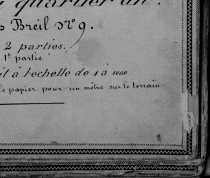 quartier du
Breil N° 9.
2 parties.
1e partie
à l'echelle de 1 à
papier pour un mètre sur le terrain